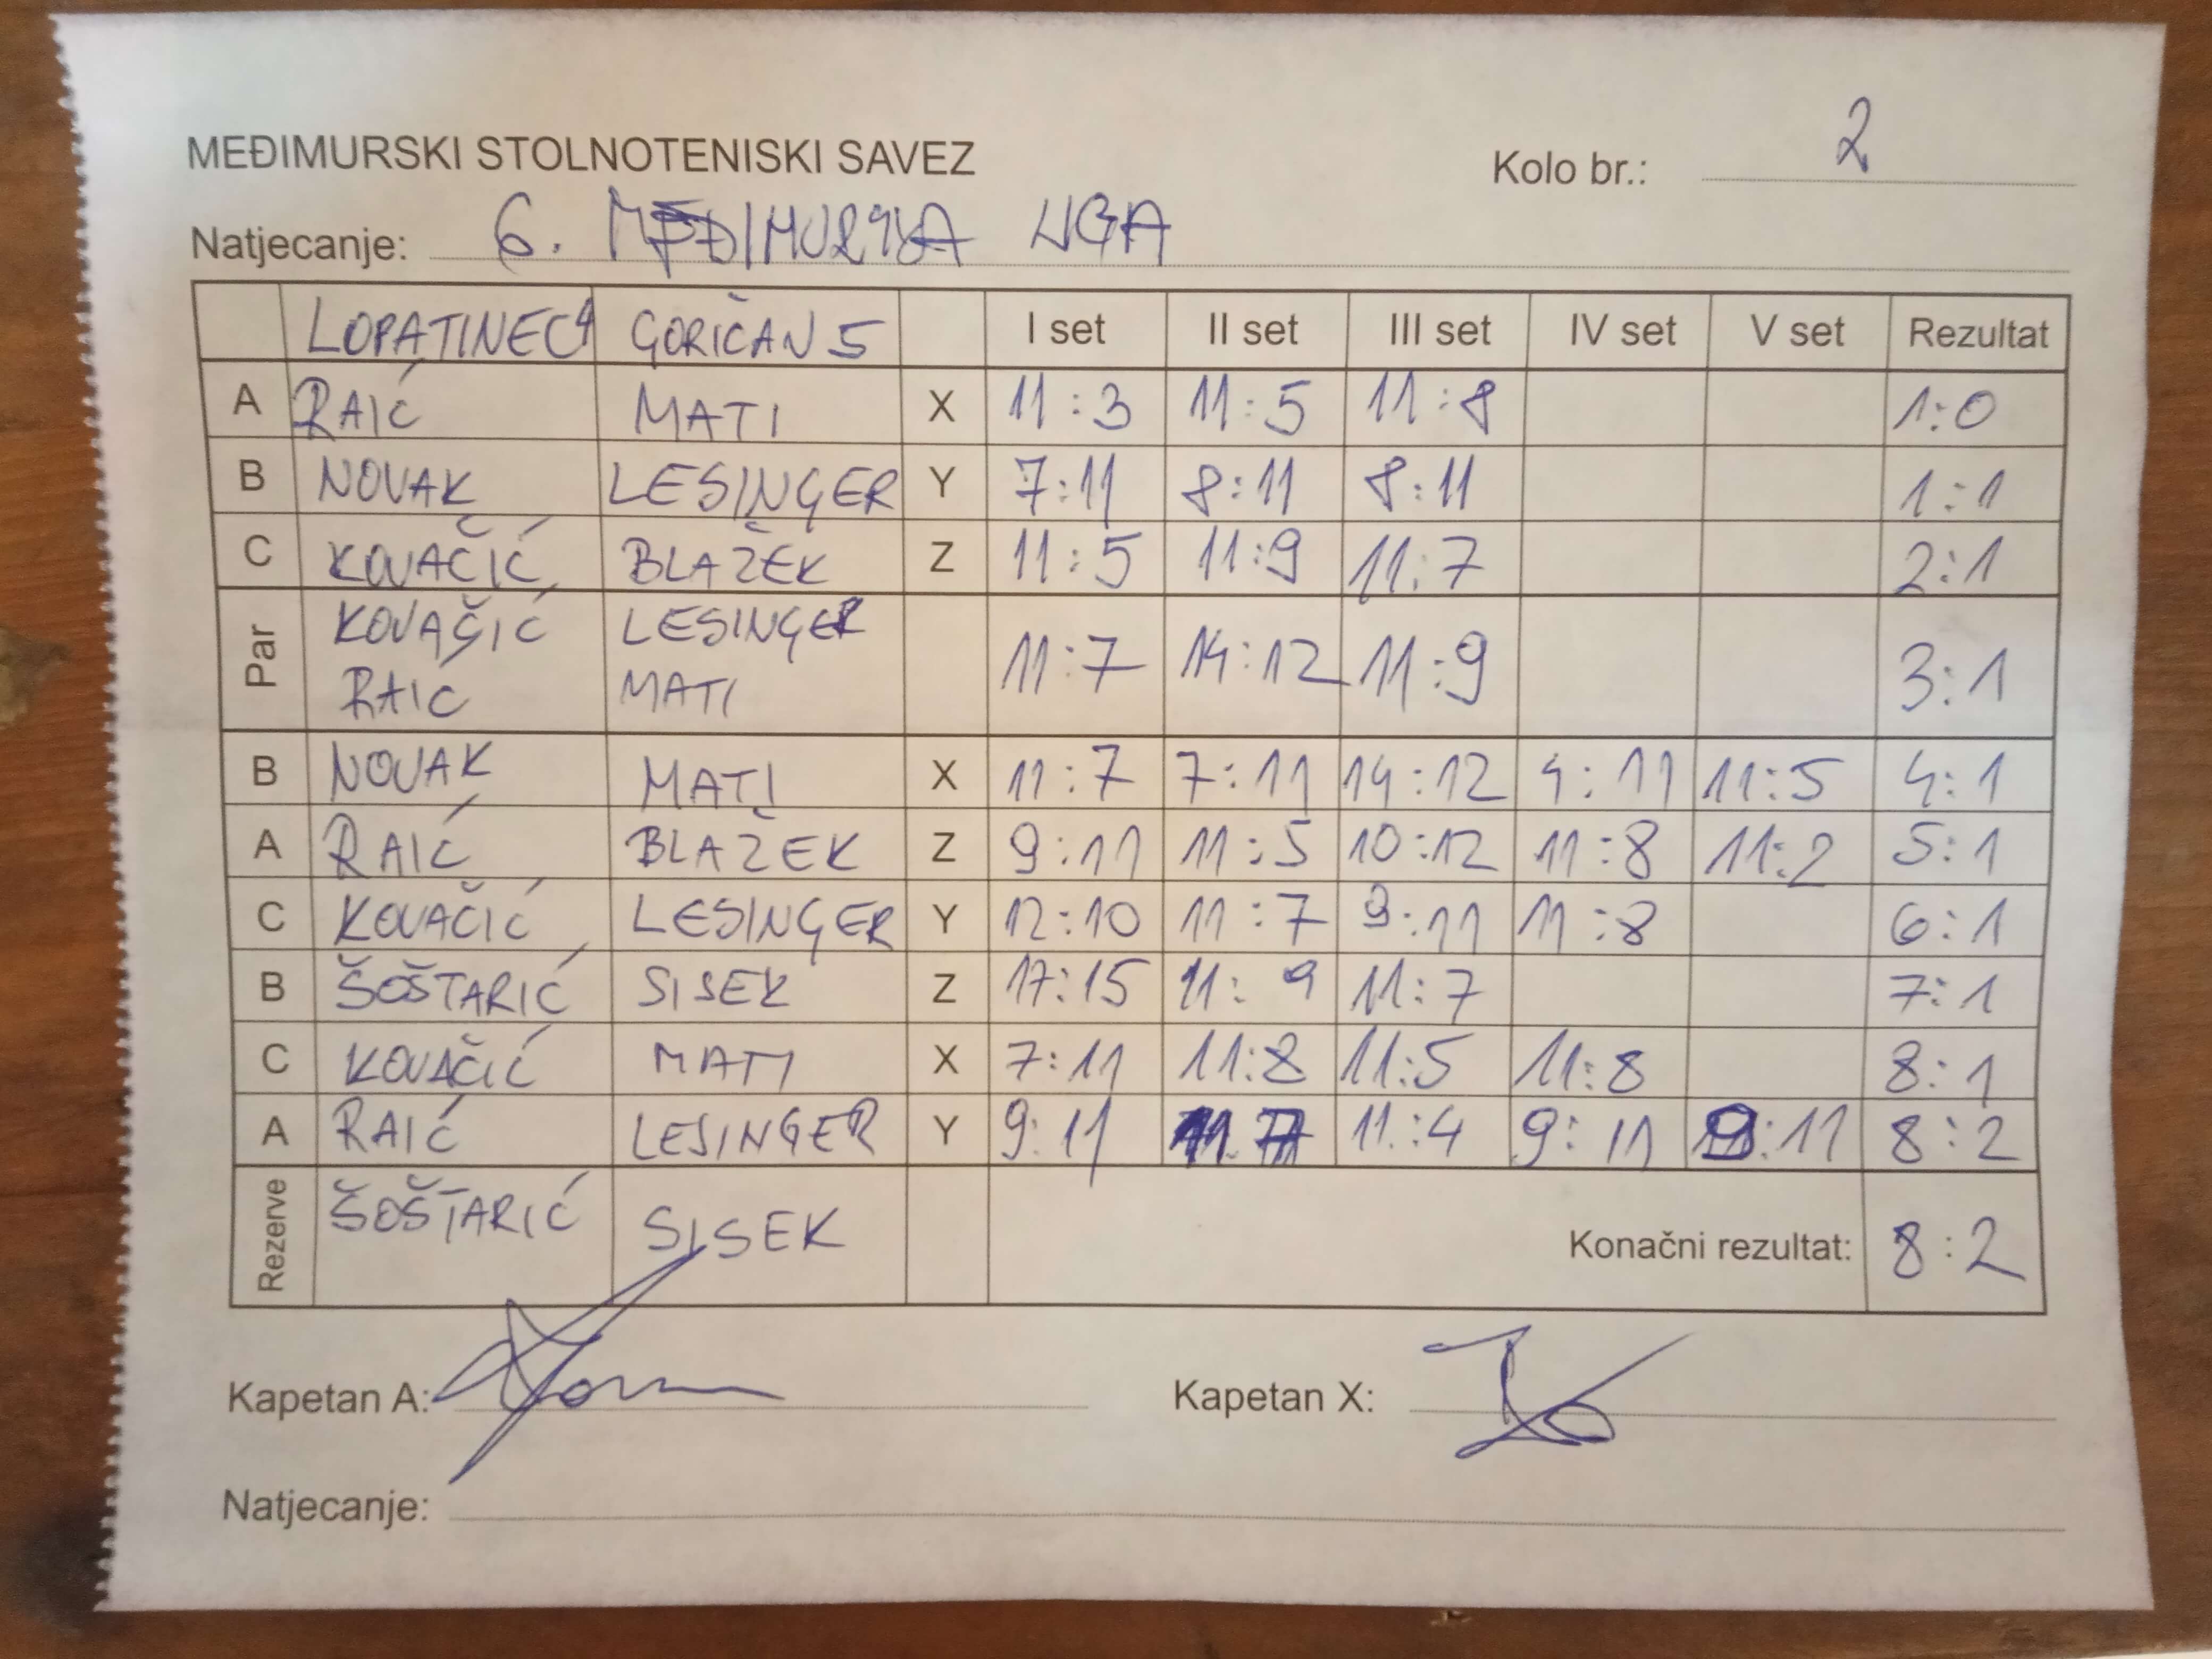 MEĐIMURSKI STOLNOTENISKI SAVEZ
Kolo br.: 2
Natjecanje: 6. MEĐIMURSKA LIGA
LOPATINEC 4 GORIČAN 5 I set II set III set IV set V set Rezultat
A RAIĆ MATI X 11:3 11:5 11:8 1:0
B NOVAK LESINGER Y 7:11 8:11 8:11 1:1
C KOVAČIĆ BLAŽEK Z 11:5 11:9 11:7 2:1
Par KOVAŠIĆ LESINGER
RAIĆ MATI 11:7 14:12 11:9 3:1
B NOVAK MATI X 11:7 7:11 14:12 4:11 11:5 4:1
A RAIĆ BLAŽEK Z 9:11 11:5 10:12 11:8 11:2 5:1
C KOVAČIĆ LESINGER Y 12:10 11:7 9:11 11:8 6:1
B ŠOŠTARIĆ SISEK Z 17:15 11:9 11:7 7:1
C KOVAČIĆ MATI X 7:11 11:8 11:5 11:8 8:1
A RAIĆ LESINGER Y 9:11 11:7 11:4 9:11 9:11 8:2
Rezerve ŠOŠTARIĆ SISEK Konačni rezultat: 8:2
Kapetan A: Kapetan X:
Natjecanje: